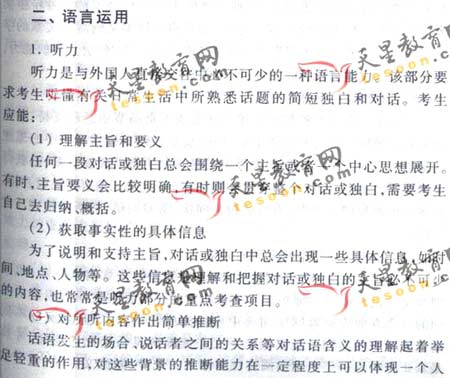 二、语言运用
1. 听力
听力是与外国人直接交往中必不可少的一种语言能力。该部分要
求考生听懂有关日常生活中所熟悉话题的简短独白和对话。考生
应能:
(1) 理解主旨和要义
任何一段对话或独白总会围绕一个主旨或一个中心思想展开。
有时,主旨要义会比较明确,有时则会贯穿整个对话或独白,需要考生
自己去归纳、概括。
(2) 获取事实性的具体信息
为了说明和支持主旨,对话或独白中总会出现一些具体信息,如时
间、地点、人物等。这些信息对理解和把握对话或独白的主旨必不可少
的内容,也常常是听力部分的重点考查项目。
(3) 对所听内容作出简单推断
话语发生的场合、说话者之间的关系等对话语含义的理解起着举
足轻重的作用,对这些背景的推断能力在一定程度上可以体现一个人
天星教育网
tesoon.com
天星教育网
tesoon.com
天星教育网
tesoon.com
天星教育网
tesoon.com